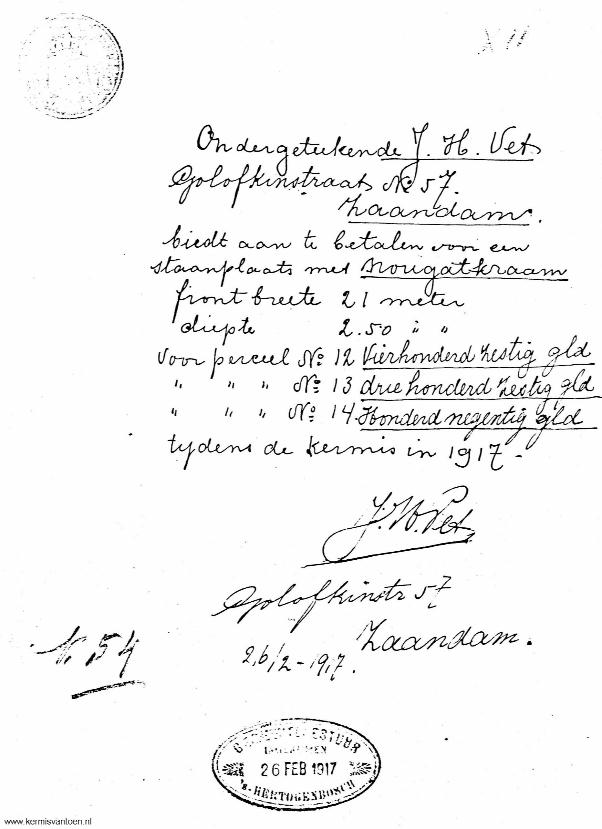 X 11
Ondergeteekende J. H. Vet
Golofkinstraat No 57.
Zaandam.
biedt aan te betalen voor een
staanplaats met Nougatkraam
front breete 21 meter
diepte 2.50 " "
Voor perceel No 12 Vierhonderd zestig gld
" " " No 13 driehonderd zestig gld
" " " No 14 Honderd negentig gld
tydens de kermis in 1917 -
J. H. Vet
Golofkinstr 57
Zaandam.
26/2 - 1917.
N. 54
GEMEENTEBESTUUR
INGEKOMEN
26 FEB 1917
's-HERTOGENBOSCH
www.kermisvantoen.nl